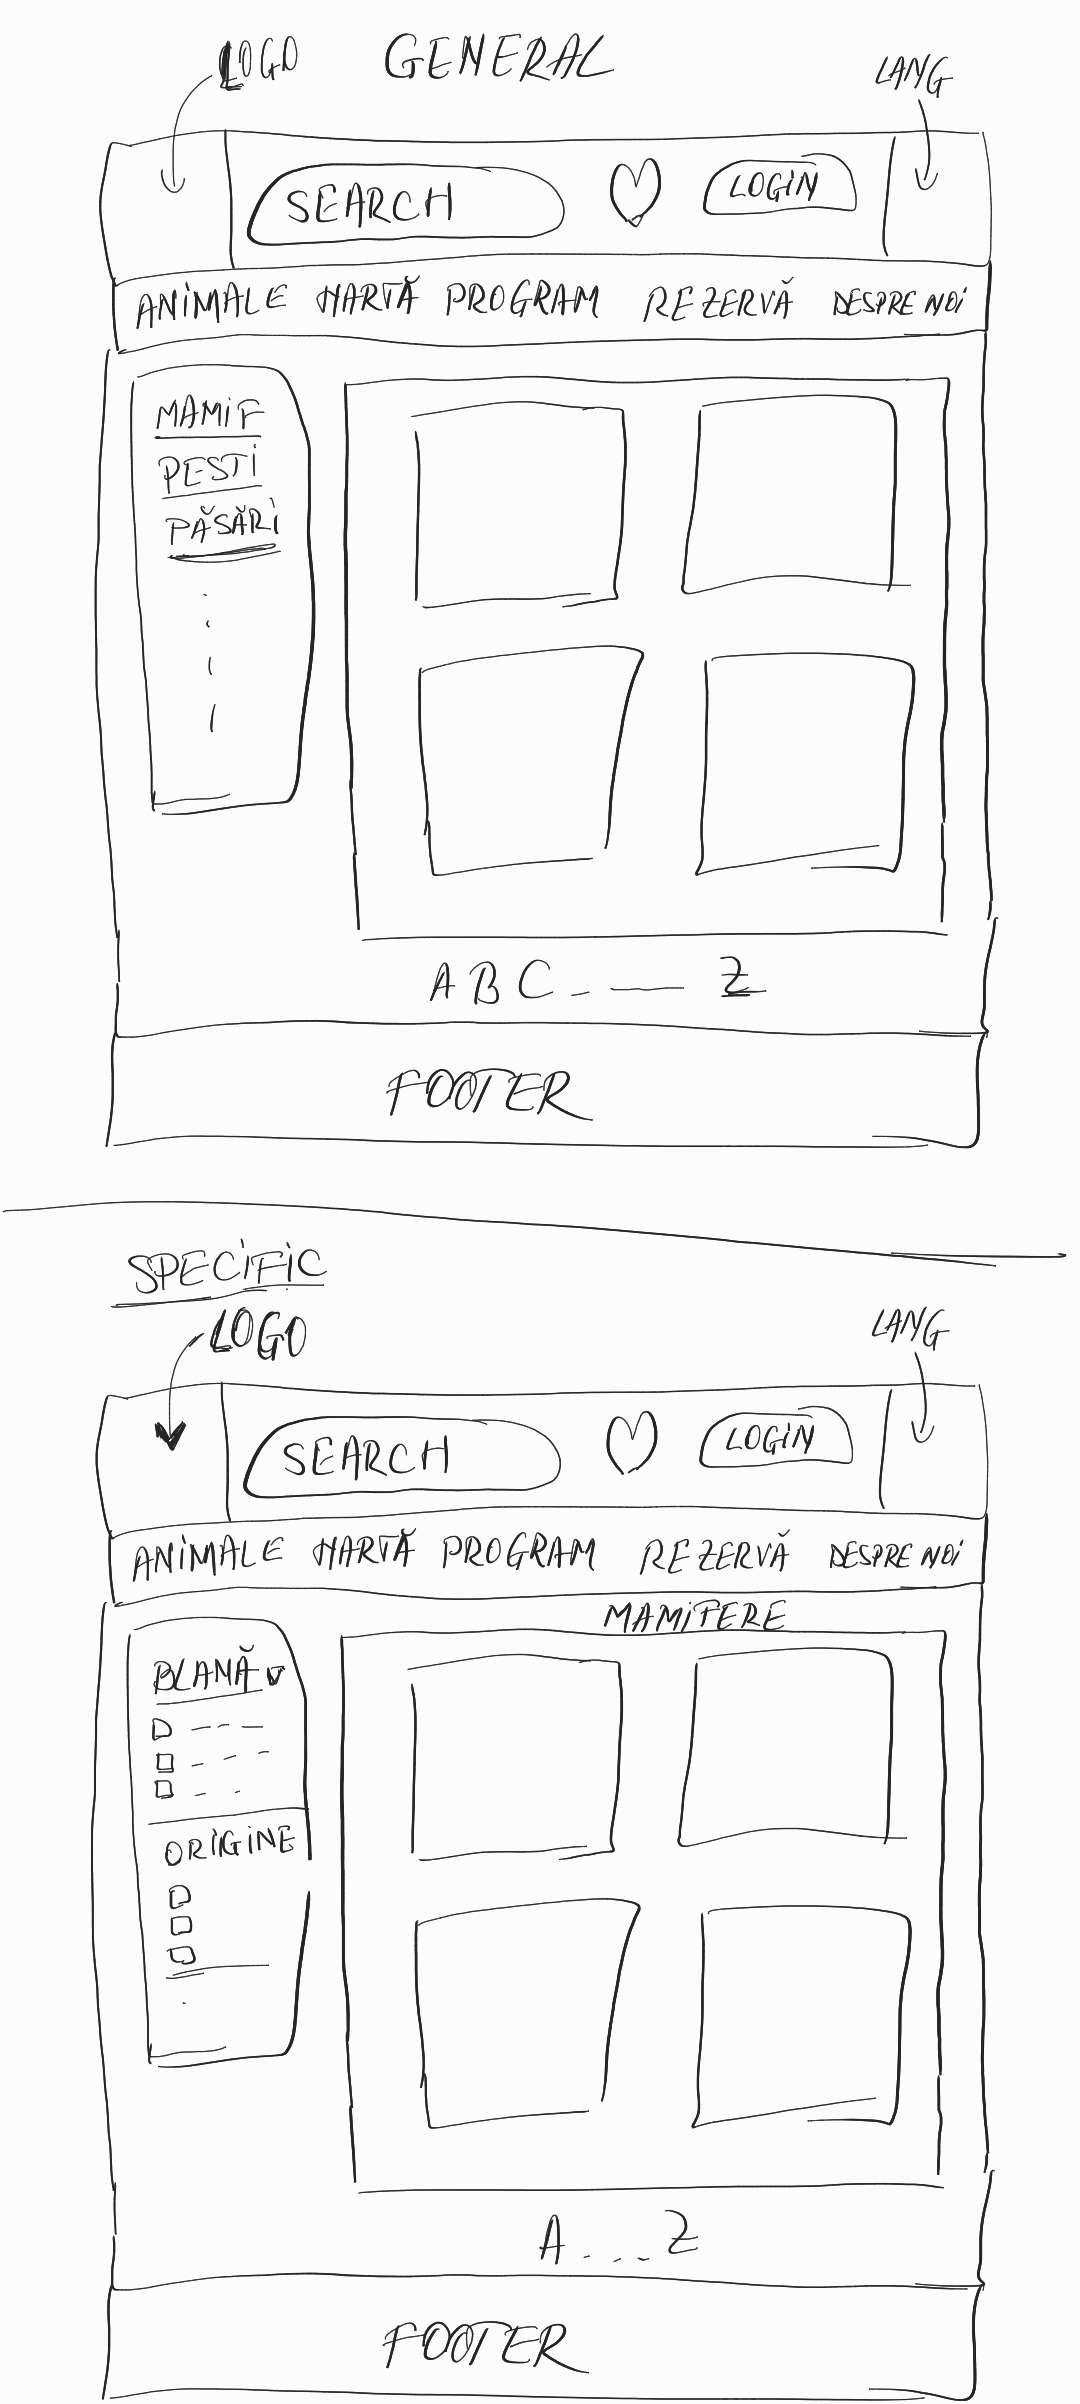 LOGO GENERAL LANG
SEARCH LOGIN
ANIMALE HARTĂ PROGRAM REZERVĂ DESPRE NOI
MAMIF
PESTI
PĂSĂRI
A B C . - — Z
FOOTER
SPECIFIC
LOGO LANG
SEARCH LOGIN
ANIMALE HARTĂ PROGRAM REZERVĂ DESPRE NOI
MAMIFERE
BLANĂ
ORIGINE
A . . . Z
FOOTER